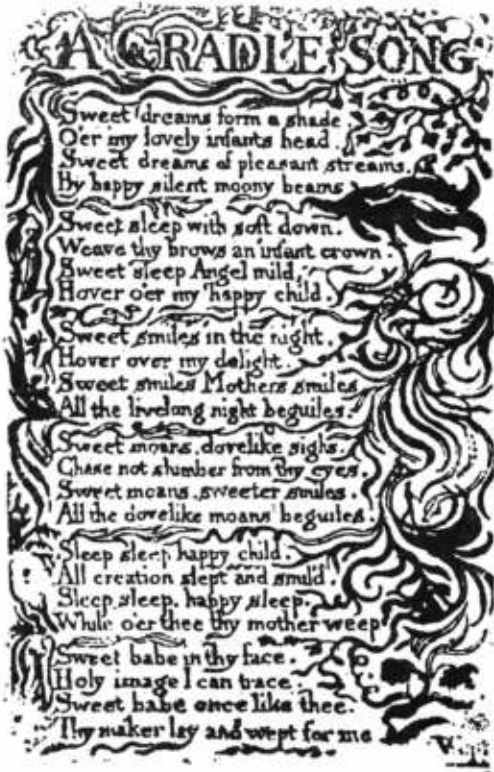 A CRADLE SONG
Sweet dreams form a shade
O'er my lovely infants head.
Sweet dreams of pleasant streams.
By happy silent moony beams
Sweet sleep with soft down.
Weave thy brows an infant crown.
Sweet sleep Angel mild,
Hover o'er my happy child.
Sweet smiles in the night.
Hover over my delight.
Sweet smiles Mothers smiles
All the livelong night beguiles.
Sweet moans, dovelike sighs.
Chase not slumber from thy eyes.
Sweet moans, sweeter smiles.
All the dovelike moans beguiles.
Sleep sleep happy child.
All creation slept and smil'd.
Sleep sleep, happy sleep,
While o'er thee thy mother weep
Sweet babe in thy face.
Holy image I can trace.
Sweet babe once like thee.
Thy maker lay and wept for me